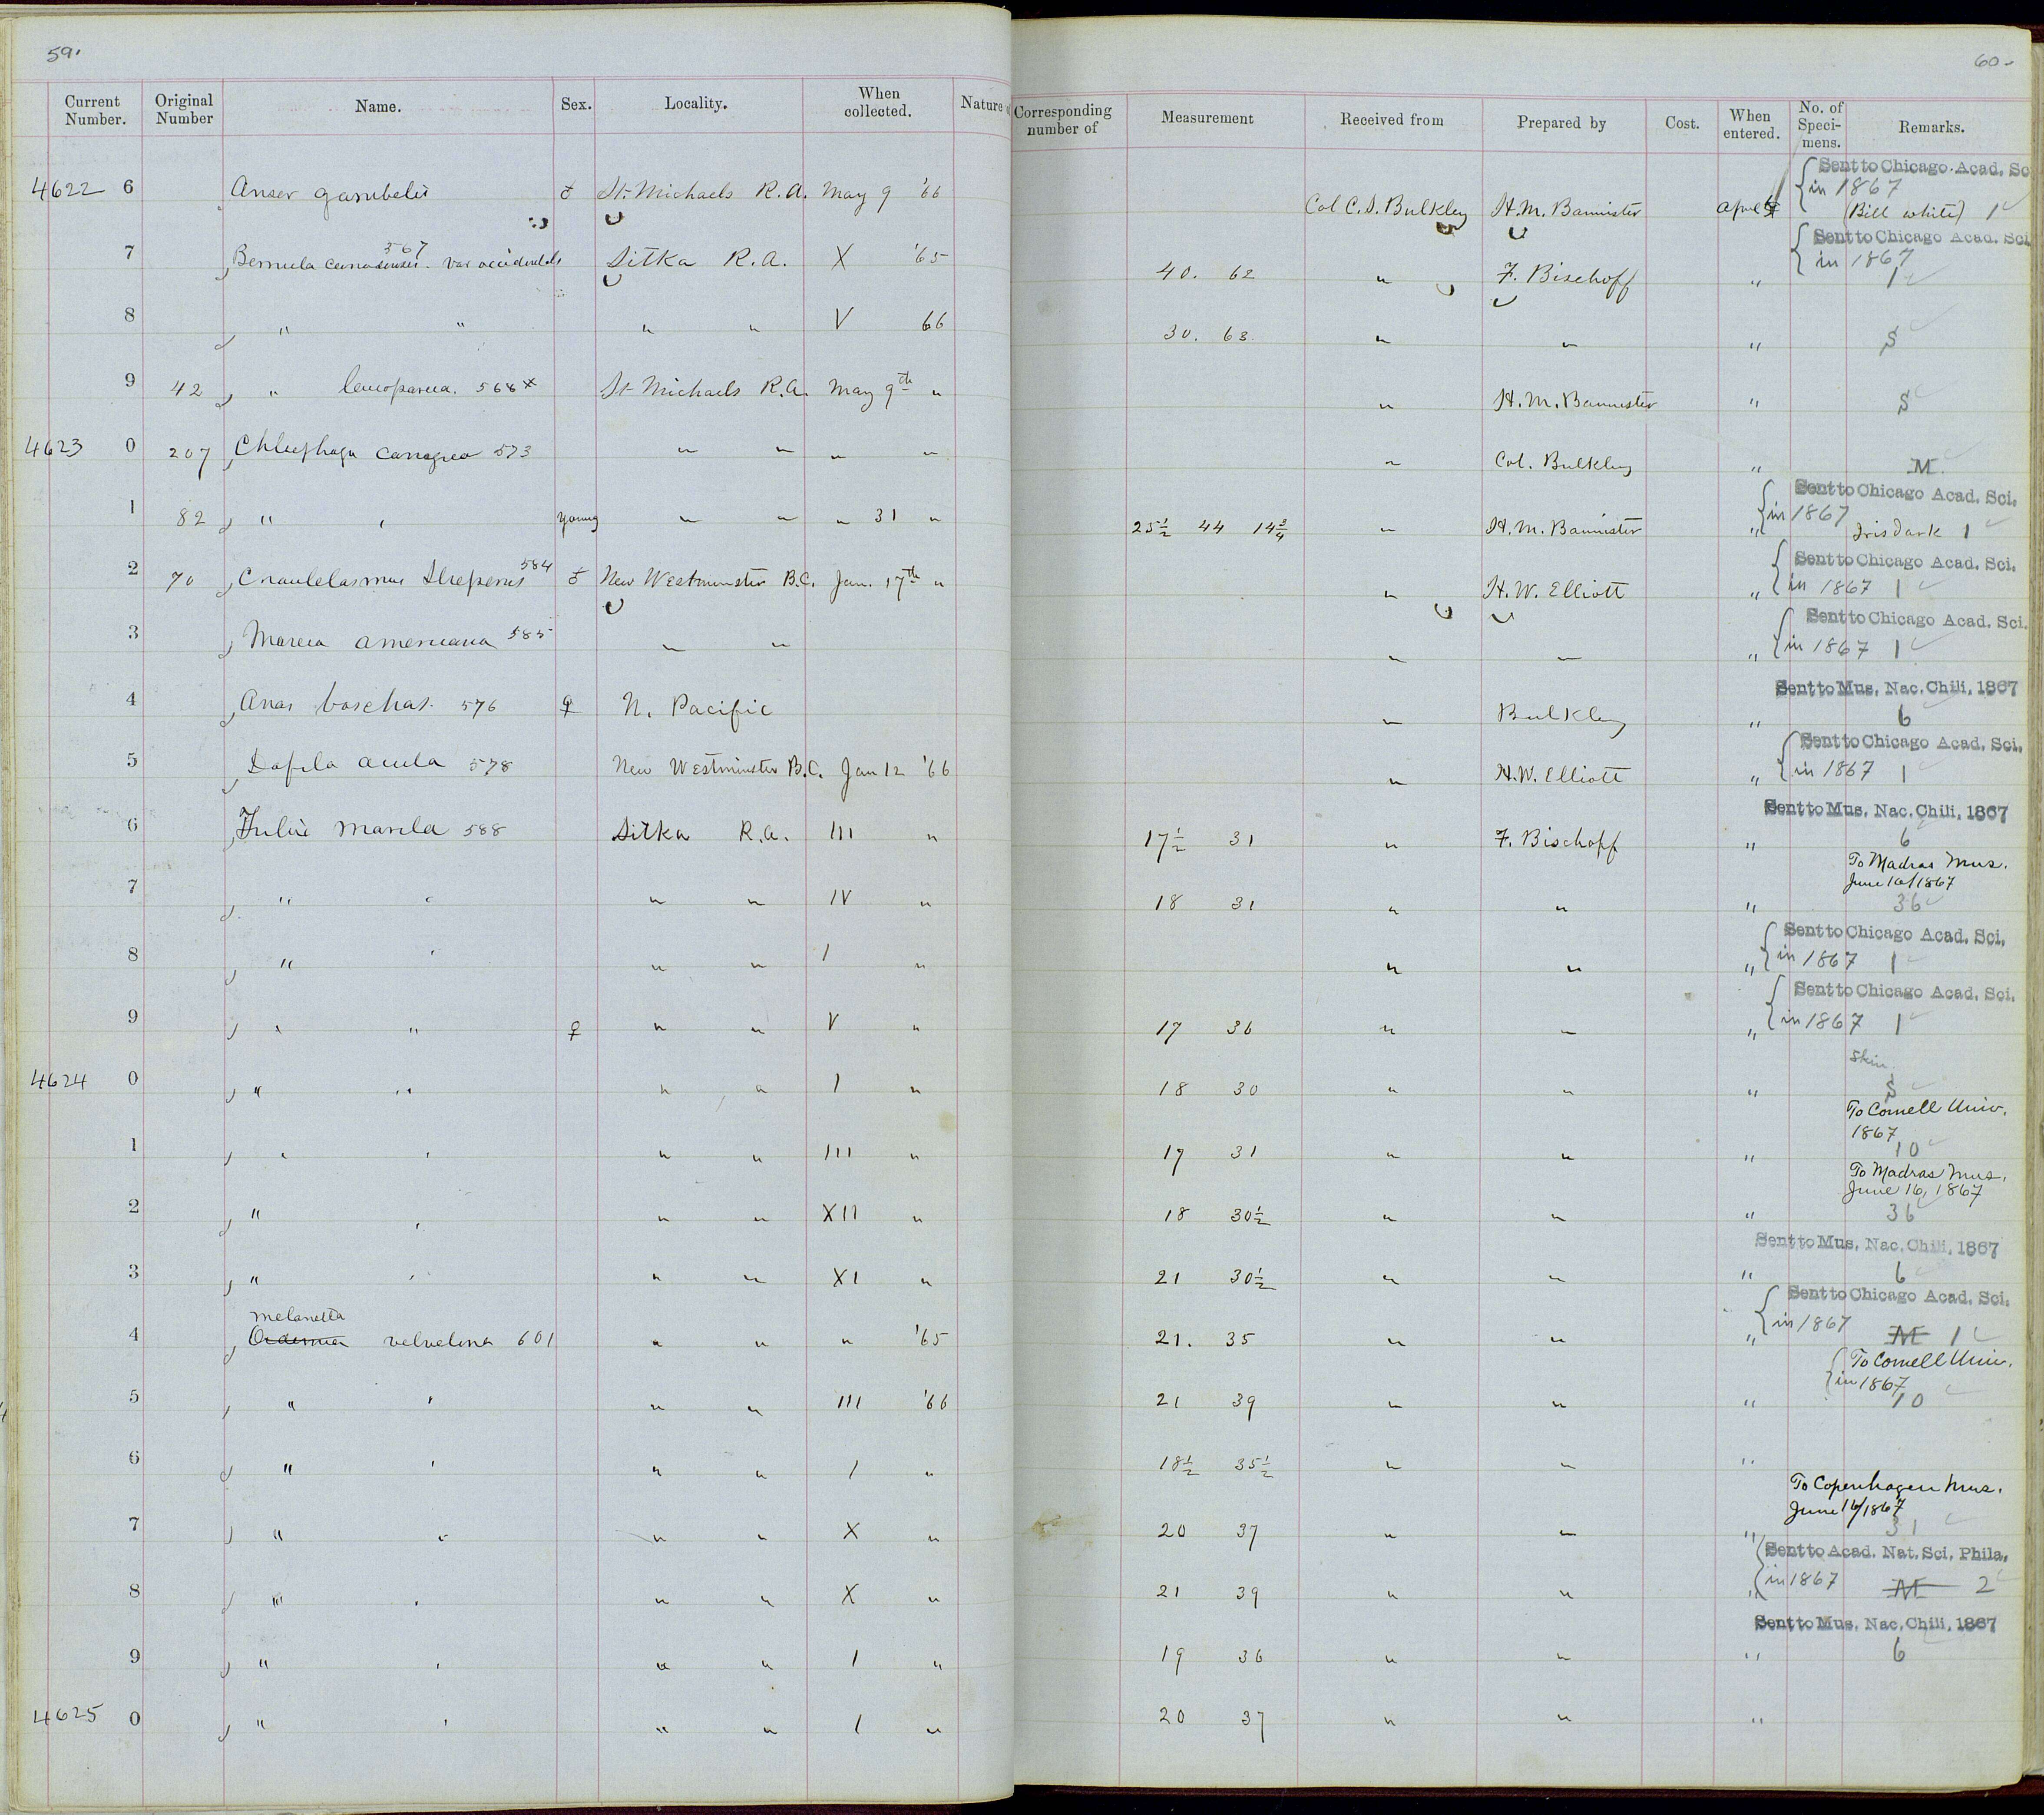 59.
60-
Current Number. Original Number Name. Sex. Locality. When collected. Nature Corresponding number of Measurement Received from Prepared by Cost. When entered. No. of Speci-mens. Remarks.
Sent to Chicago Acad. Sc
in 1867
4622 6 Anser gambelii ♂ St. Michaels R.A. May 9 '66 Col C. S. Bulkley H. M. Bannister (Bill white) 1
Sent to Chicago Acad. Sci.
in 1867
7 Bernicla canadensis 567 var occidentalis Sitka R.A. X '65 40. 62 " F. Bischoff " 1
8 " " " " V 66 30. 63 " " " S
9 42 " leucopareia. 568 x St Michaels R.A. May 9th " " H. M. Bannister " S
4623 0 207 Chloephaga canagica 573 " " " " " Col. Bulkley " M
Sent to Chicago Acad. Sci.
in 1867
1 82 " " young " " " 31 " 25½ 44 14¾ " H. M. Bannister " Iris dark 1
Sent to Chicago Acad. Sci.
2 70 Chaulelasmus streperus 584 ♂ New Westminster B.C. Jan. 17th " " H. W. Elliott " in 1867 1
Sent to Chicago Acad. Sci.
3 Mareca americana 585 " " " " " in 1867 1
Sent to Mus. Nac. Chili, 1867
4 Anas boschas. 576 ♀ N. Pacific " Bulkley " 6
Sent to Chicago Acad. Sci.
5 Dafila acuta 578 New Westminster B.C. Jan 12 '66 " H. W. Elliott " in 1867 1
Sent to Mus. Nac. Chili, 1867
6 Fulix marila 588 Sitka R.A. III " 17½ 31 " F. Bischoff " 6
To Madras Mus.
June 16/1867
7 " " " " IV " 18 31 " " " 36
Sent to Chicago Acad. Sci.
8 " " " " I " " " " in 1867 1
Sent to Chicago Acad. Sci.
9 " " ♀ " " V " 17 36 " " " in 1867 1
Skin
4624 0 " " " " I " 18 30 " " " S
To Cornell Univ.
1867
1 " " " " III " 17 31 " " " 10
To Madras Mus.
June 16, 1867
2 " " " " XII " 18 30½ " " " 36
Sent to Mus. Nac. Chili, 1867
3 " " " " XI " 21 30½ " " " 6
Sent to Chicago Acad. Sci.
in 1867
melanetta
4 velvetina 601 " " " '65 21. 35 " " " M 1
To Cornell Univ.
in 1867
5 " " " " III '66 21 39 " " " 10
6 " " " " I " 18½ 35½ " " "
To Copenhagen Mus.
June 16/1867
7 " " " " X " 20 37 " " " 31
Sent to Acad. Nat. Sci. Phila.
8 " " " " X " 21 39 " " " in 1867 M 2
Sent to Mus. Nac. Chili, 1867
9 " " " " I " 19 36 " " " 6
4625 0 " " " " I " 20 37 " " "